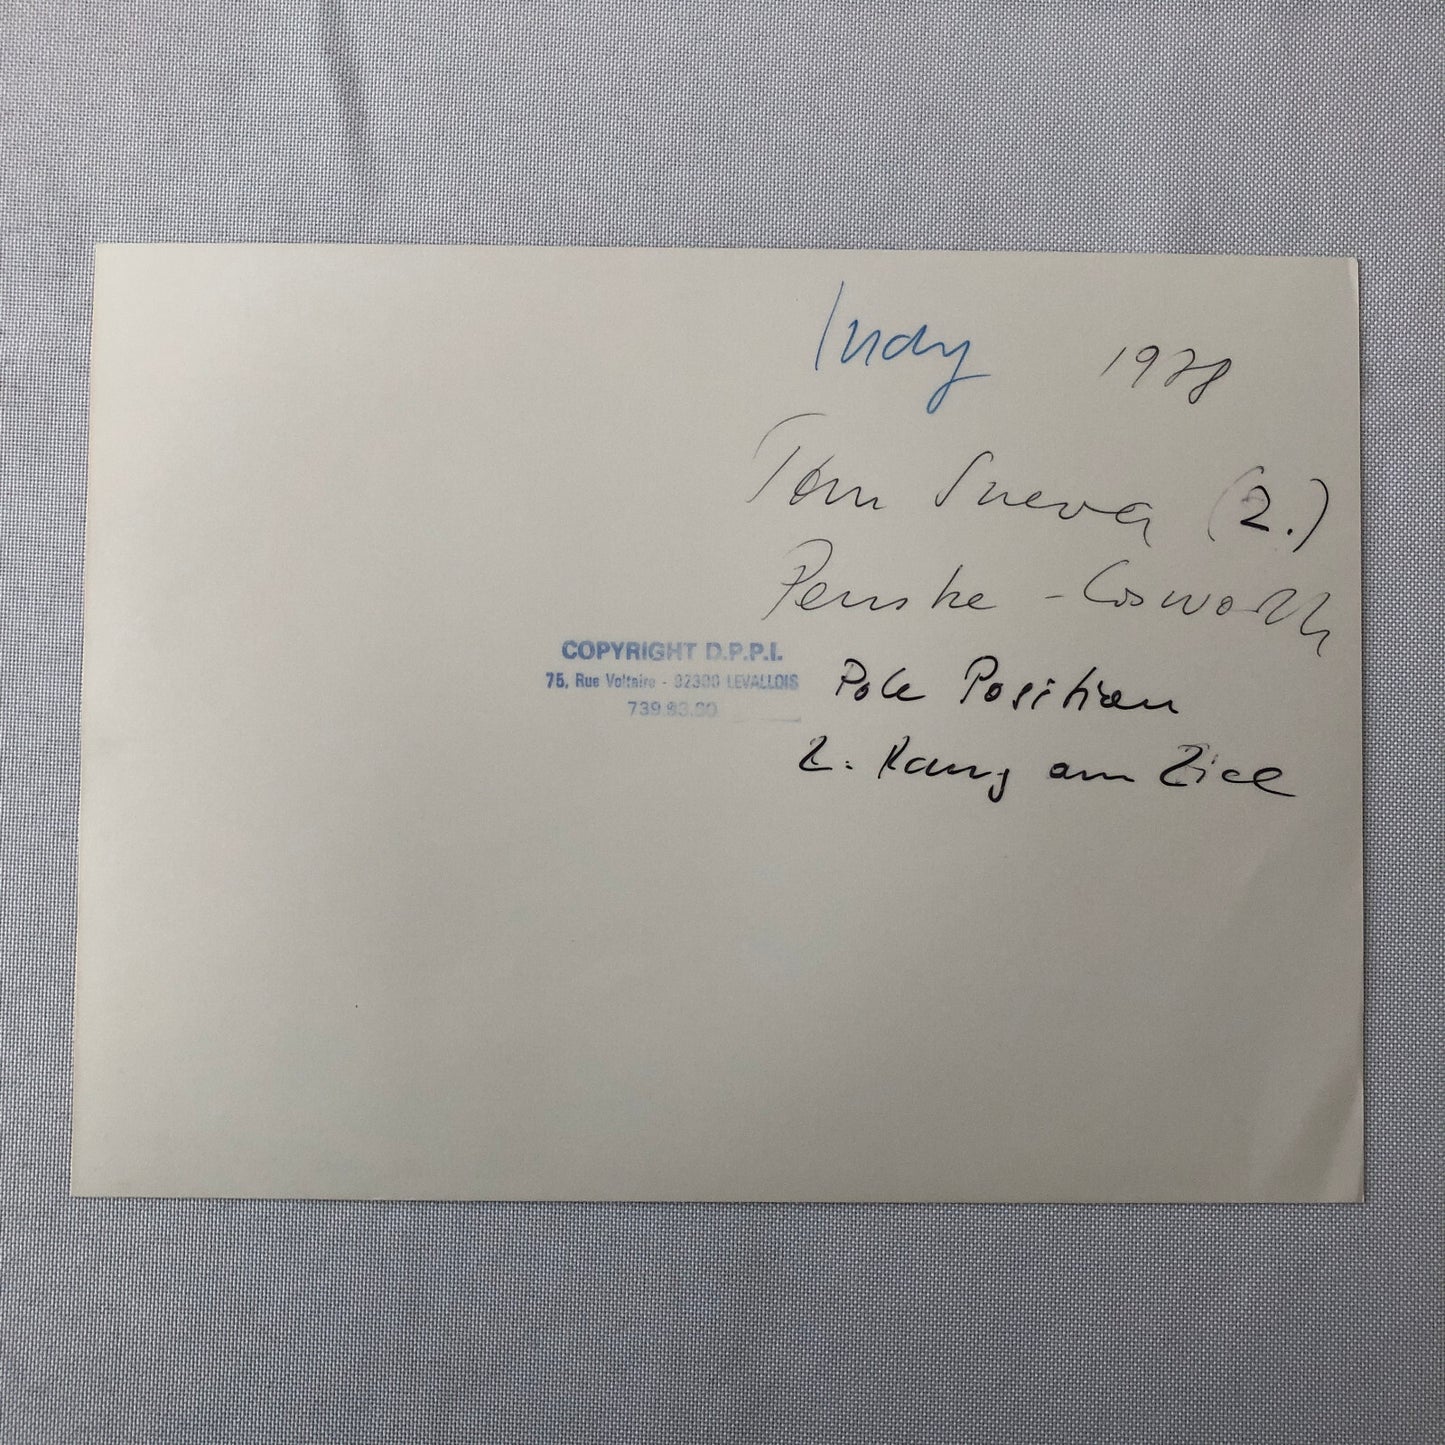 Indy 1978
Tom Sneva (2.)
Penske - Cosworth
COPYRIGHT D.P.P.I.
75, Rue Voltaire - 92300 LEVALLOIS
Pole Position
2. Rang am Ziel